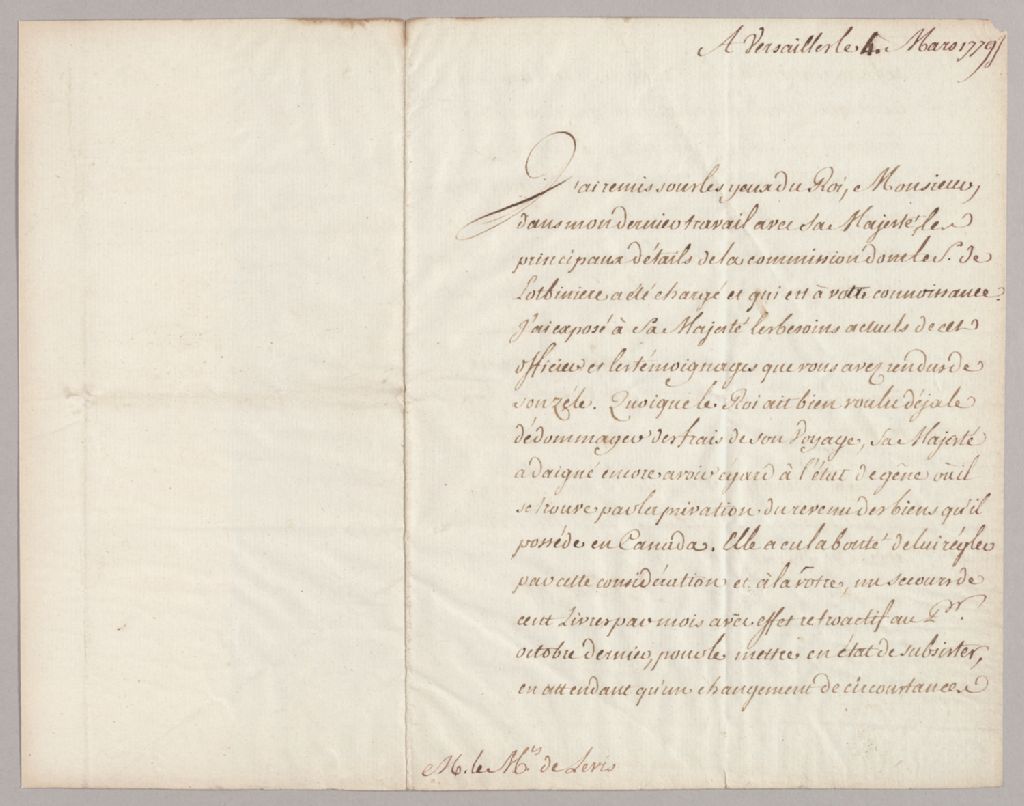 A Versailles le 4. Mars 1779
J'ai remis sous les yeux du Roi, Monsieur,
dans mon dernier travail avec Sa Majesté, les
principaux détails de la commission dont le S. de
Lotbiniere a été chargé et qui est à votre connoissance.
J'ai exposé à Sa Majesté les besoins actuels de cet
officier et les témoignages que vous avez rendus de
son zéle. Quoique le Roi ait bien voulu déja le
dédommager des frais de son Voyage, Sa Majesté
a daigné encore avoir égard à l'état de gêne où il
se trouve par la privation du revenu des biens qu'il
posséde en Canada. Elle a eu la bonté de lui régler
par cette considération et à la vôtre, un secours de
cent Livres par mois avec effet retroactif au P.er
octobre dernier, pour le mettre en état de subsister,
en attendant qu'un changement de circonstances
M. le M.is de Levis